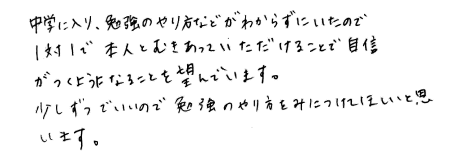 中学に入り、勉強のやり方などがわからずにいたので
1対1で本人とむきあっていただけることで自信
がつくようなることを望んでいます。
少しずつでいいので勉強のやり方をみにつけてほしいと思
います。